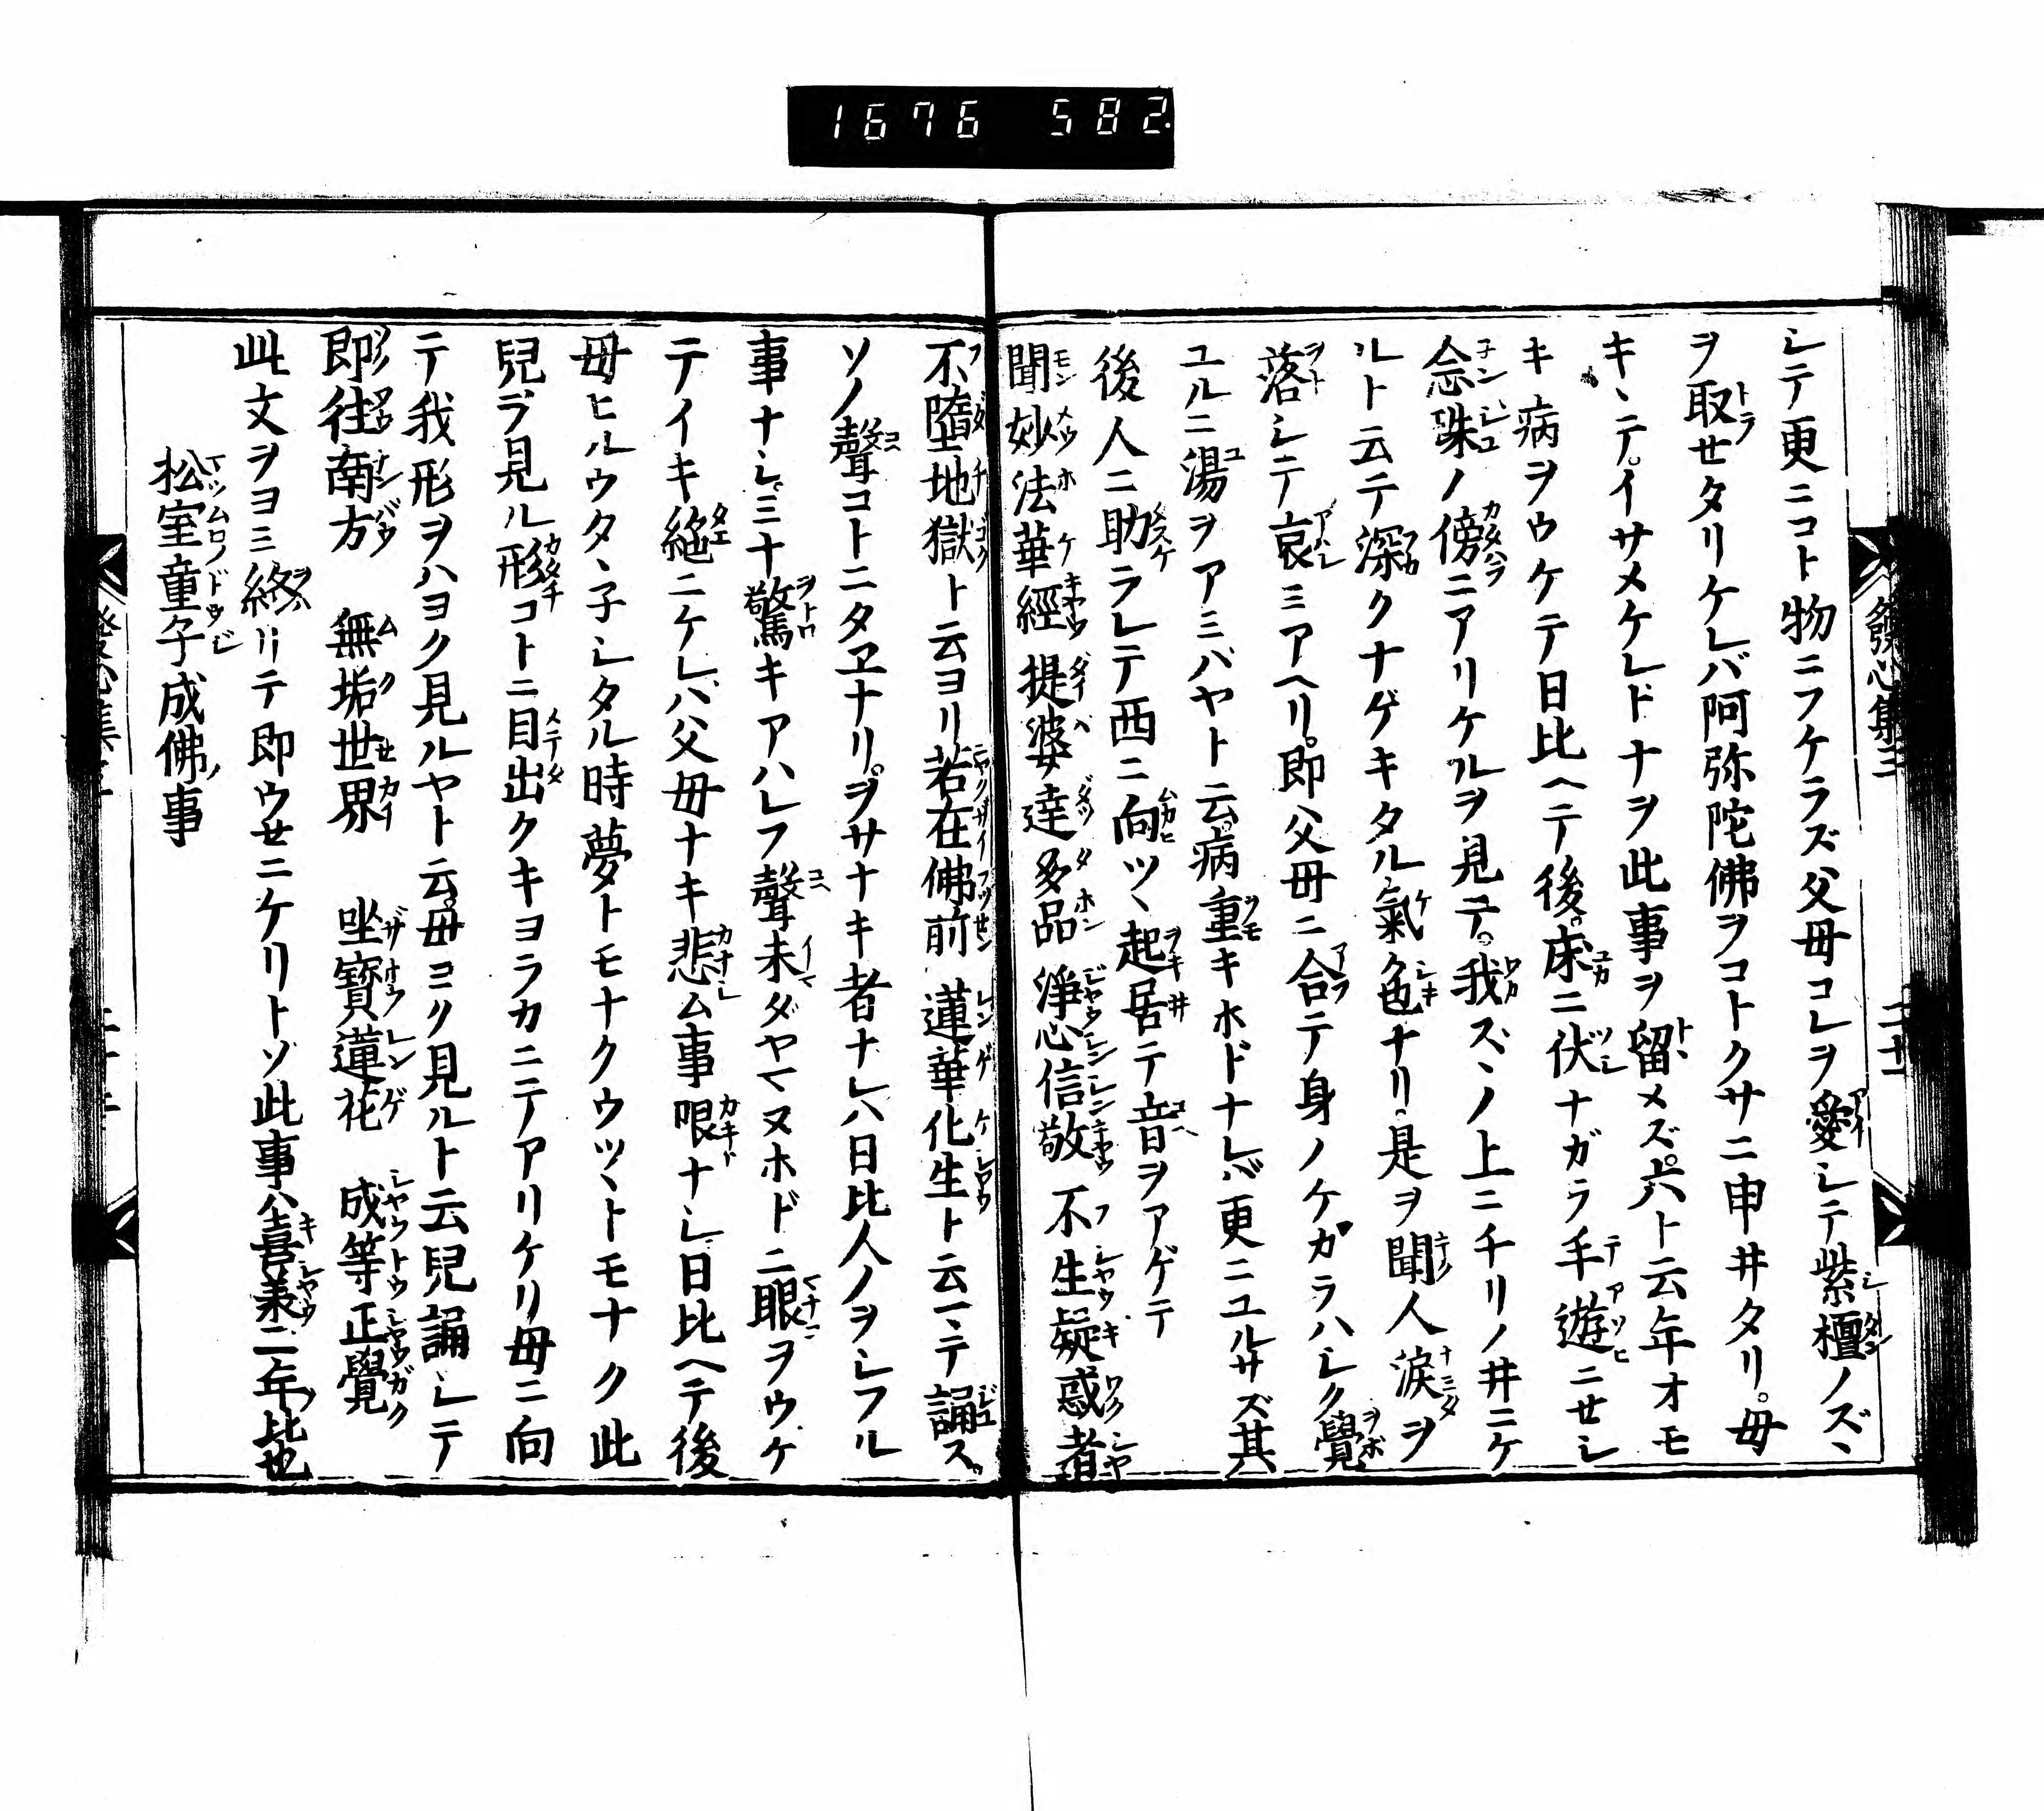 1676 582.
發心集三
二十一
シテ更ニコト物ニフケラズ父母コレヲ愛シテ紫檀ノズヽ
ヲ取セタリケレバ阿弥陀佛ヲコトクサニ申井タリ。母
キヽテ。イサメケレドナヲ此事ヲ留メズ。六ト云年オモ
キ病ヲウケテ日比ヘテ後。床ニ伏ナガラ手遊ニセシ
念珠ノ傍ニアリケルヲ見テ。我ズヽノ上ニチリノ井ニケ
ルト云テ深クナゲキタル氣色ナリ是ヲ聞人涙ヲ
落シテ哀ミアヘリ。即父母ニ合テ身ノケガラハシク覺
ユルニ湯ヲアミバヤト云。病重キホドナレバ更ニユルサズ其
後人ニ助ラレテ西ニ向ツヽ起居テ音ヲアゲテ
聞妙法華經 提婆達多品 淨心信敬 不生疑惑者
不墮地獄ト云ヨリ若在佛前 蓮華化生ト云マテ誦ス。
ソノ聲コトニタヱナリ。ヲサナキ者ナレハ日比人ノヲシフル
事ナシ。ミナ驚キアハレフ聲未ダヤマヌホドニ眼ヲウケ
テイキ絶ニケレハ父母ナキ悲ム事限ナシ。日比ヘテ後
母ヒルウタヽ子シタル時夢トモナクウツヽトモナク此
兒ヲ見ル形コトニ目出クキヨラカニテアリケリ母ニ向
テ我形ヲハヨク見ルヤト云。母ヨク見ルト云兒誦シテ
即往南方 無垢世界 坐寶蓮花 成等正覺
此文ヲヨミ終リテ即ウセニケリトゾ此事ハ喜兼二年ノ比也
松室童子成佛ノ事